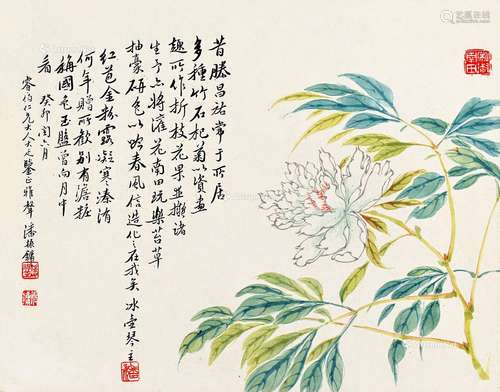 昔滕昌祐常于所居
多種竹石杞菊以資畫
趣所作折枝花果並擬諸
生予亦將灌花南田玩樂苔草
抽豪研色以吟春風信造化之在我矣 冰壺琴主
紅芭金粉露凝寒溱洧
何年贈所歡別有澹粧
稱國色玉盤曾向月中
看 癸卯閏六月
睿伯仁兄大人大定鑒正雅聲 潘振鏞